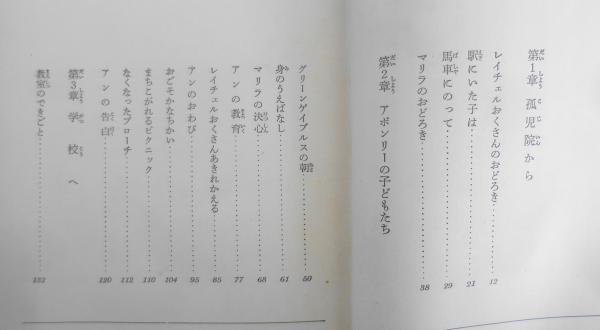 第1章 孤児院から
レイチェルおくさんのおどろき 12
駅にいた子は 21
馬車にのって 29
マリラのおどろき 38
第2章 アボンリーの子どもたち
グリーンゲイブルスの朝 50
身のうえばなし 61
マリラの決心 68
アンの教育 77
レイチェルおくさんあきれかえる 85
アンのおわび 95
おごそかなちかい 104
まちこがれるピクニック 110
なくなったブローチ 112
アンの告白 120
第3章 学校へ
教室のできごと 132